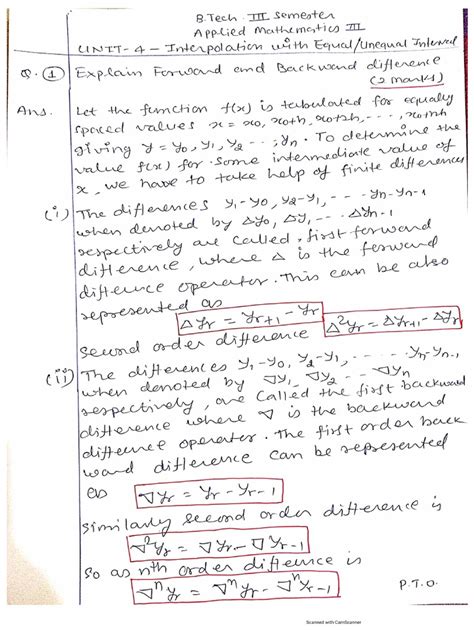 B.Tech. III Semester
Applied Mathematics III
UNIT-4 - Interpolation with Equal/Unequal Interval
Q. ① Explain Forward and Backward difference
(2 marks)
Ans. Let the function f(x) is tabulated for equally
spaced values x = x₀, x₀+h, x₀+2h, ..., x₀+nh
giving y = y₀, y₁, y₂ ..., yₙ. To determine the
value f(x) for some intermediate value of
x, we have to take help of finite differences
(i) The differences y₁-y₀, y₂-y₁, ... yₙ-yₙ-₁
when denoted by Δy₀, Δy₁ ... Δyₙ-₁
respectively are called, first forward
difference, where Δ is the forward
difference operator. This can be also
represented as
Δyᵣ = yᵣ₊₁ - yᵣ
second order difference Δ²yᵣ = Δyᵣ₊₁ - Δyᵣ
(ii) The differences y₁-y₀, y₂-y₁, ..... yₙ-yₙ-₁,
when denoted by ∇y₁, ∇y₂ ... ∇yₙ
respectively, are called the first backward
difference where ∇ is the backward
difference operator. The first order back
ward difference can be represented
as ∇yᵣ = yᵣ - yᵣ₋₁
Similarly second order difference is
∇²yᵣ = ∇yᵣ - ∇yᵣ₋₁
So as nth order difference is
∇ⁿyᵣ = ∇ⁿyᵣ - ∇ⁿyᵣ₋₁
P.T.O.
Scanned with CamScanner